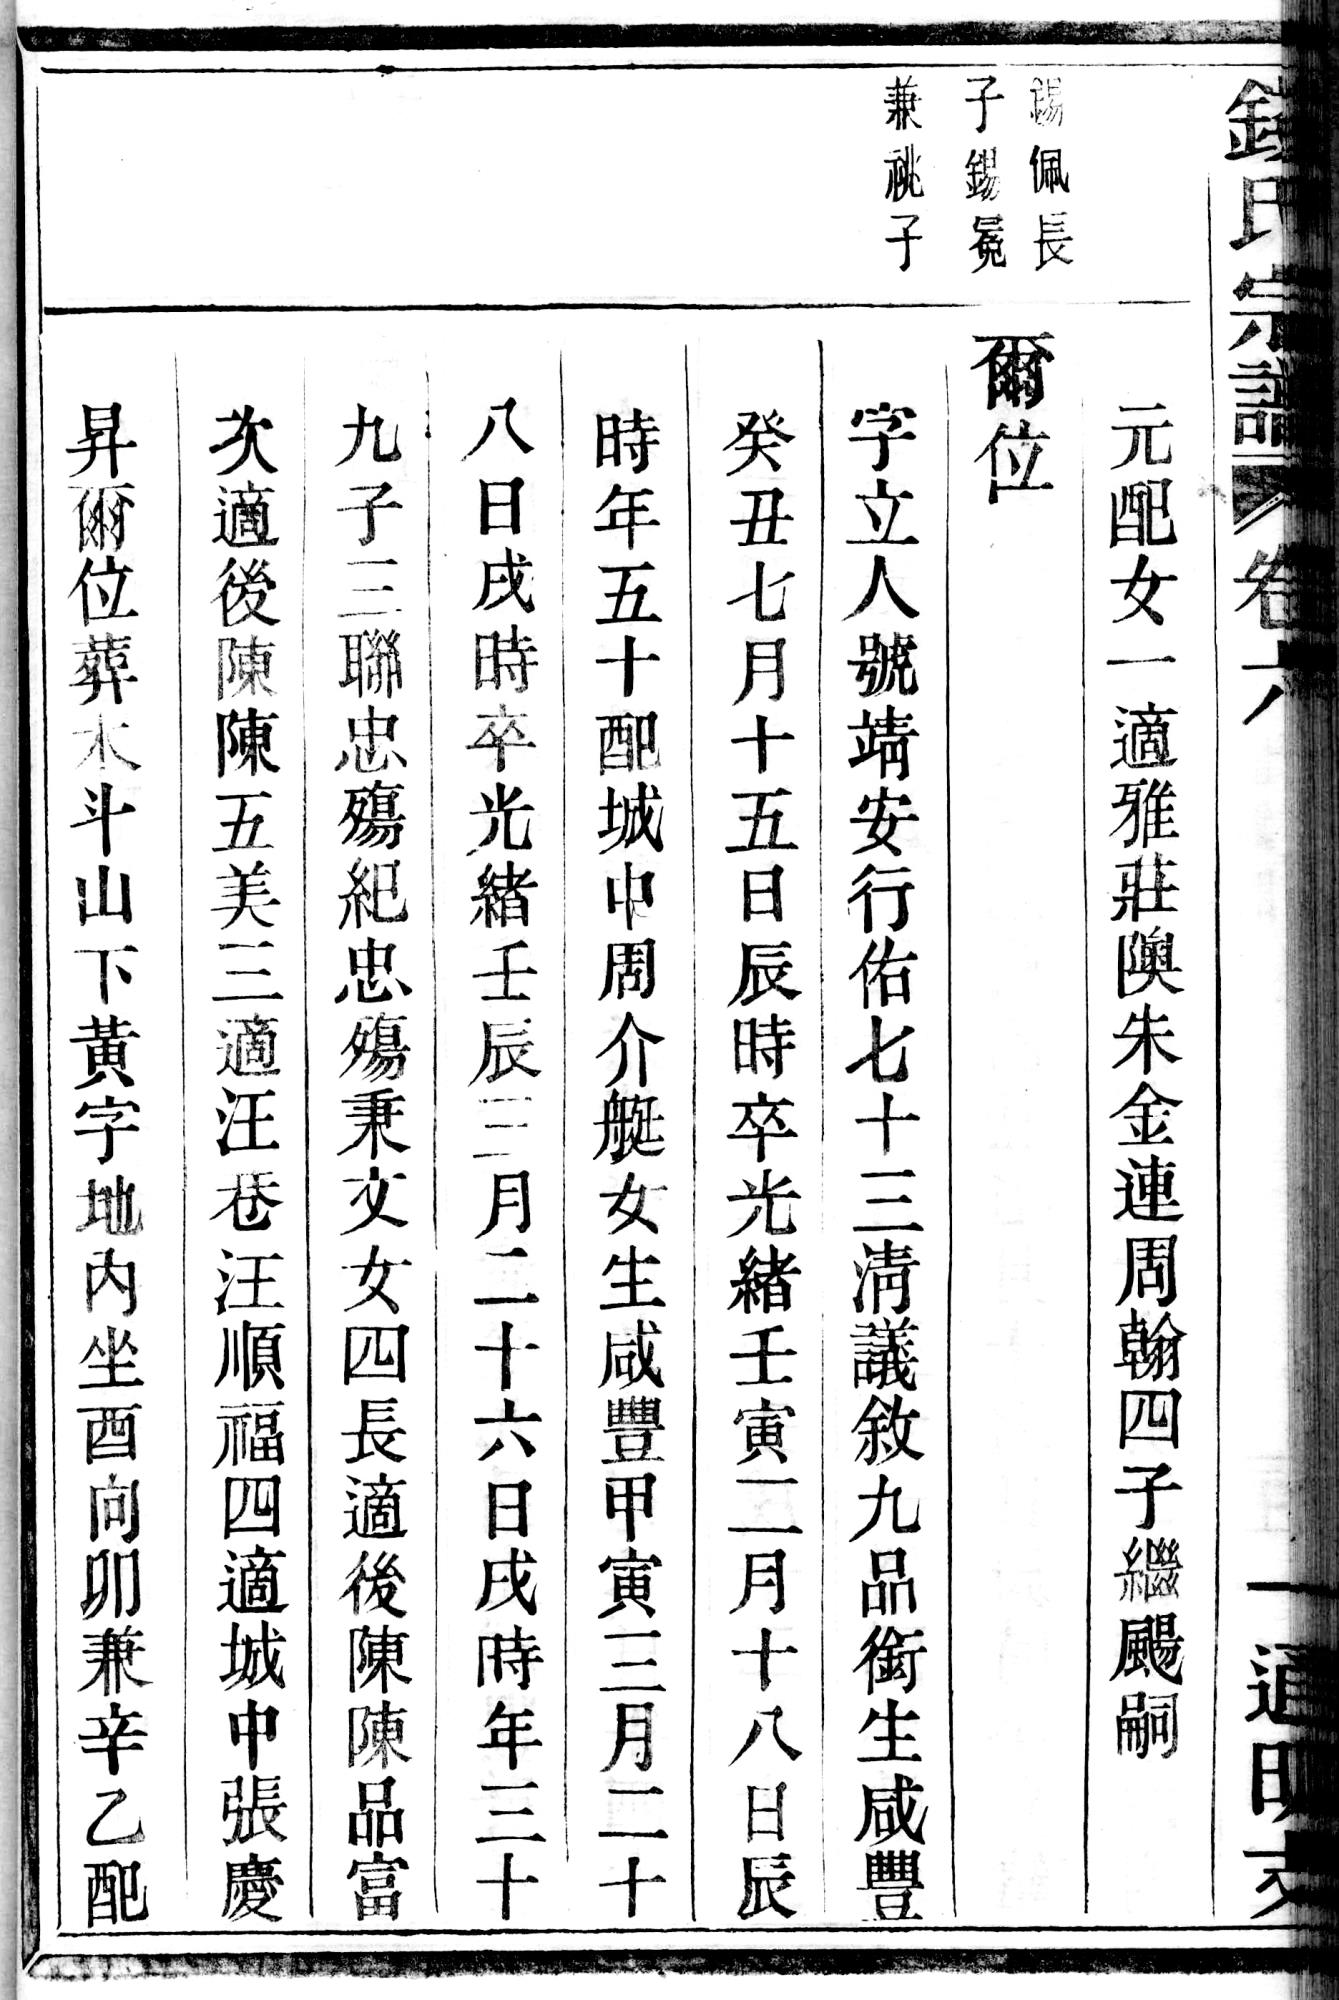 錢氏宗譜 卷六 通明支
錫佩長
子錫冕
兼祧子
元配女一適雅莊隩朱金連周翰四子繼颺嗣
爾位
字立人號靖安行佑七十三清議敘九品銜生咸豐
癸丑七月十五日辰時卒光緒壬寅二月十八日辰
時年五十配城中周介艇女生咸豐甲寅三月二十
八日戌時卒光緒壬辰三月二十六日戌時年三十
九子三聯忠殤紀忠殤秉文女四長適後陳陳品富
次適後陳陳五美三適汪巷汪順福四適城中張慶
昇爾位葬木斗山下黃字地內坐酉向卯兼辛乙配